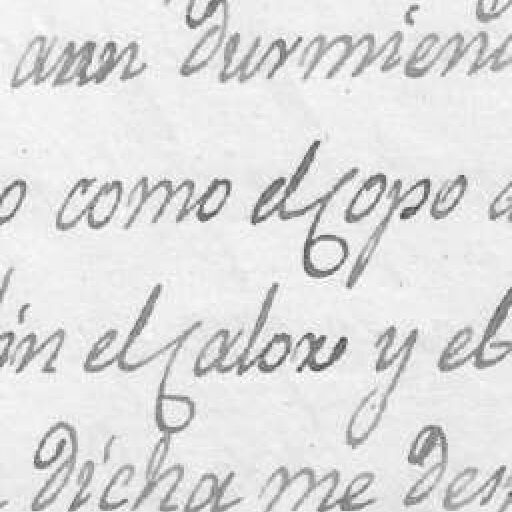 aun durmiend
o como el Copo a
ín el Calor y el
dicha me des